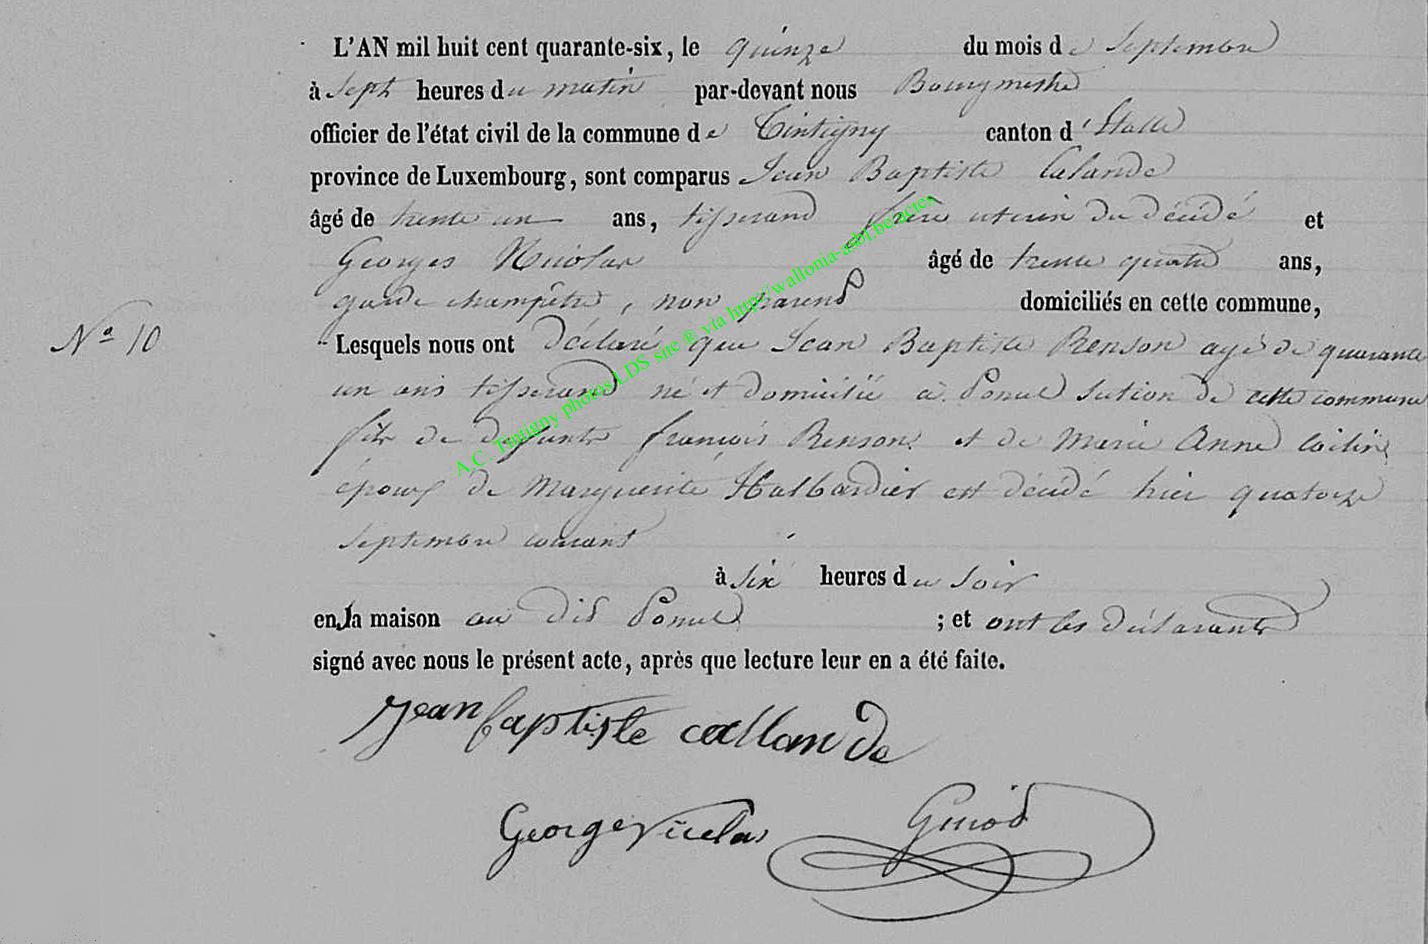 L'AN mil huit cent quarante-six, le quinze du mois de Septembre
à Sept heures du matin par-devant nous Bourgmestre
officier de l'état civil de la commune de Tintigny canton d'Etalle
province de Luxembourg, sont comparus Jean Baptiste Calande
âgé de trente un ans, tisserand frère uterin du décédé et
Georges Nicolas âgé de trente quatre ans,
garde champêtre, non parent domiciliés en cette commune,
N° 10
Lesquels nous ont déclaré que Jean Baptiste Renson agé de quarante
un ans tisserand né et domicilié à Ponul Section de cette commune
fils de defunts françois Renson et de Marie Anne
époux de Marguerite Halbardier est décédé hier quatorze
Septembre courant
à Six heures du Soir
en la maison au dit Ponul ; et ont les déclarants
signé avec nous le présent acte, après que lecture leur en a été faite.
Jean baptiste callande
George nicolas Ginod
A.C. Tintigny photos LDS site ® via http://walloma-asbl.be/actes